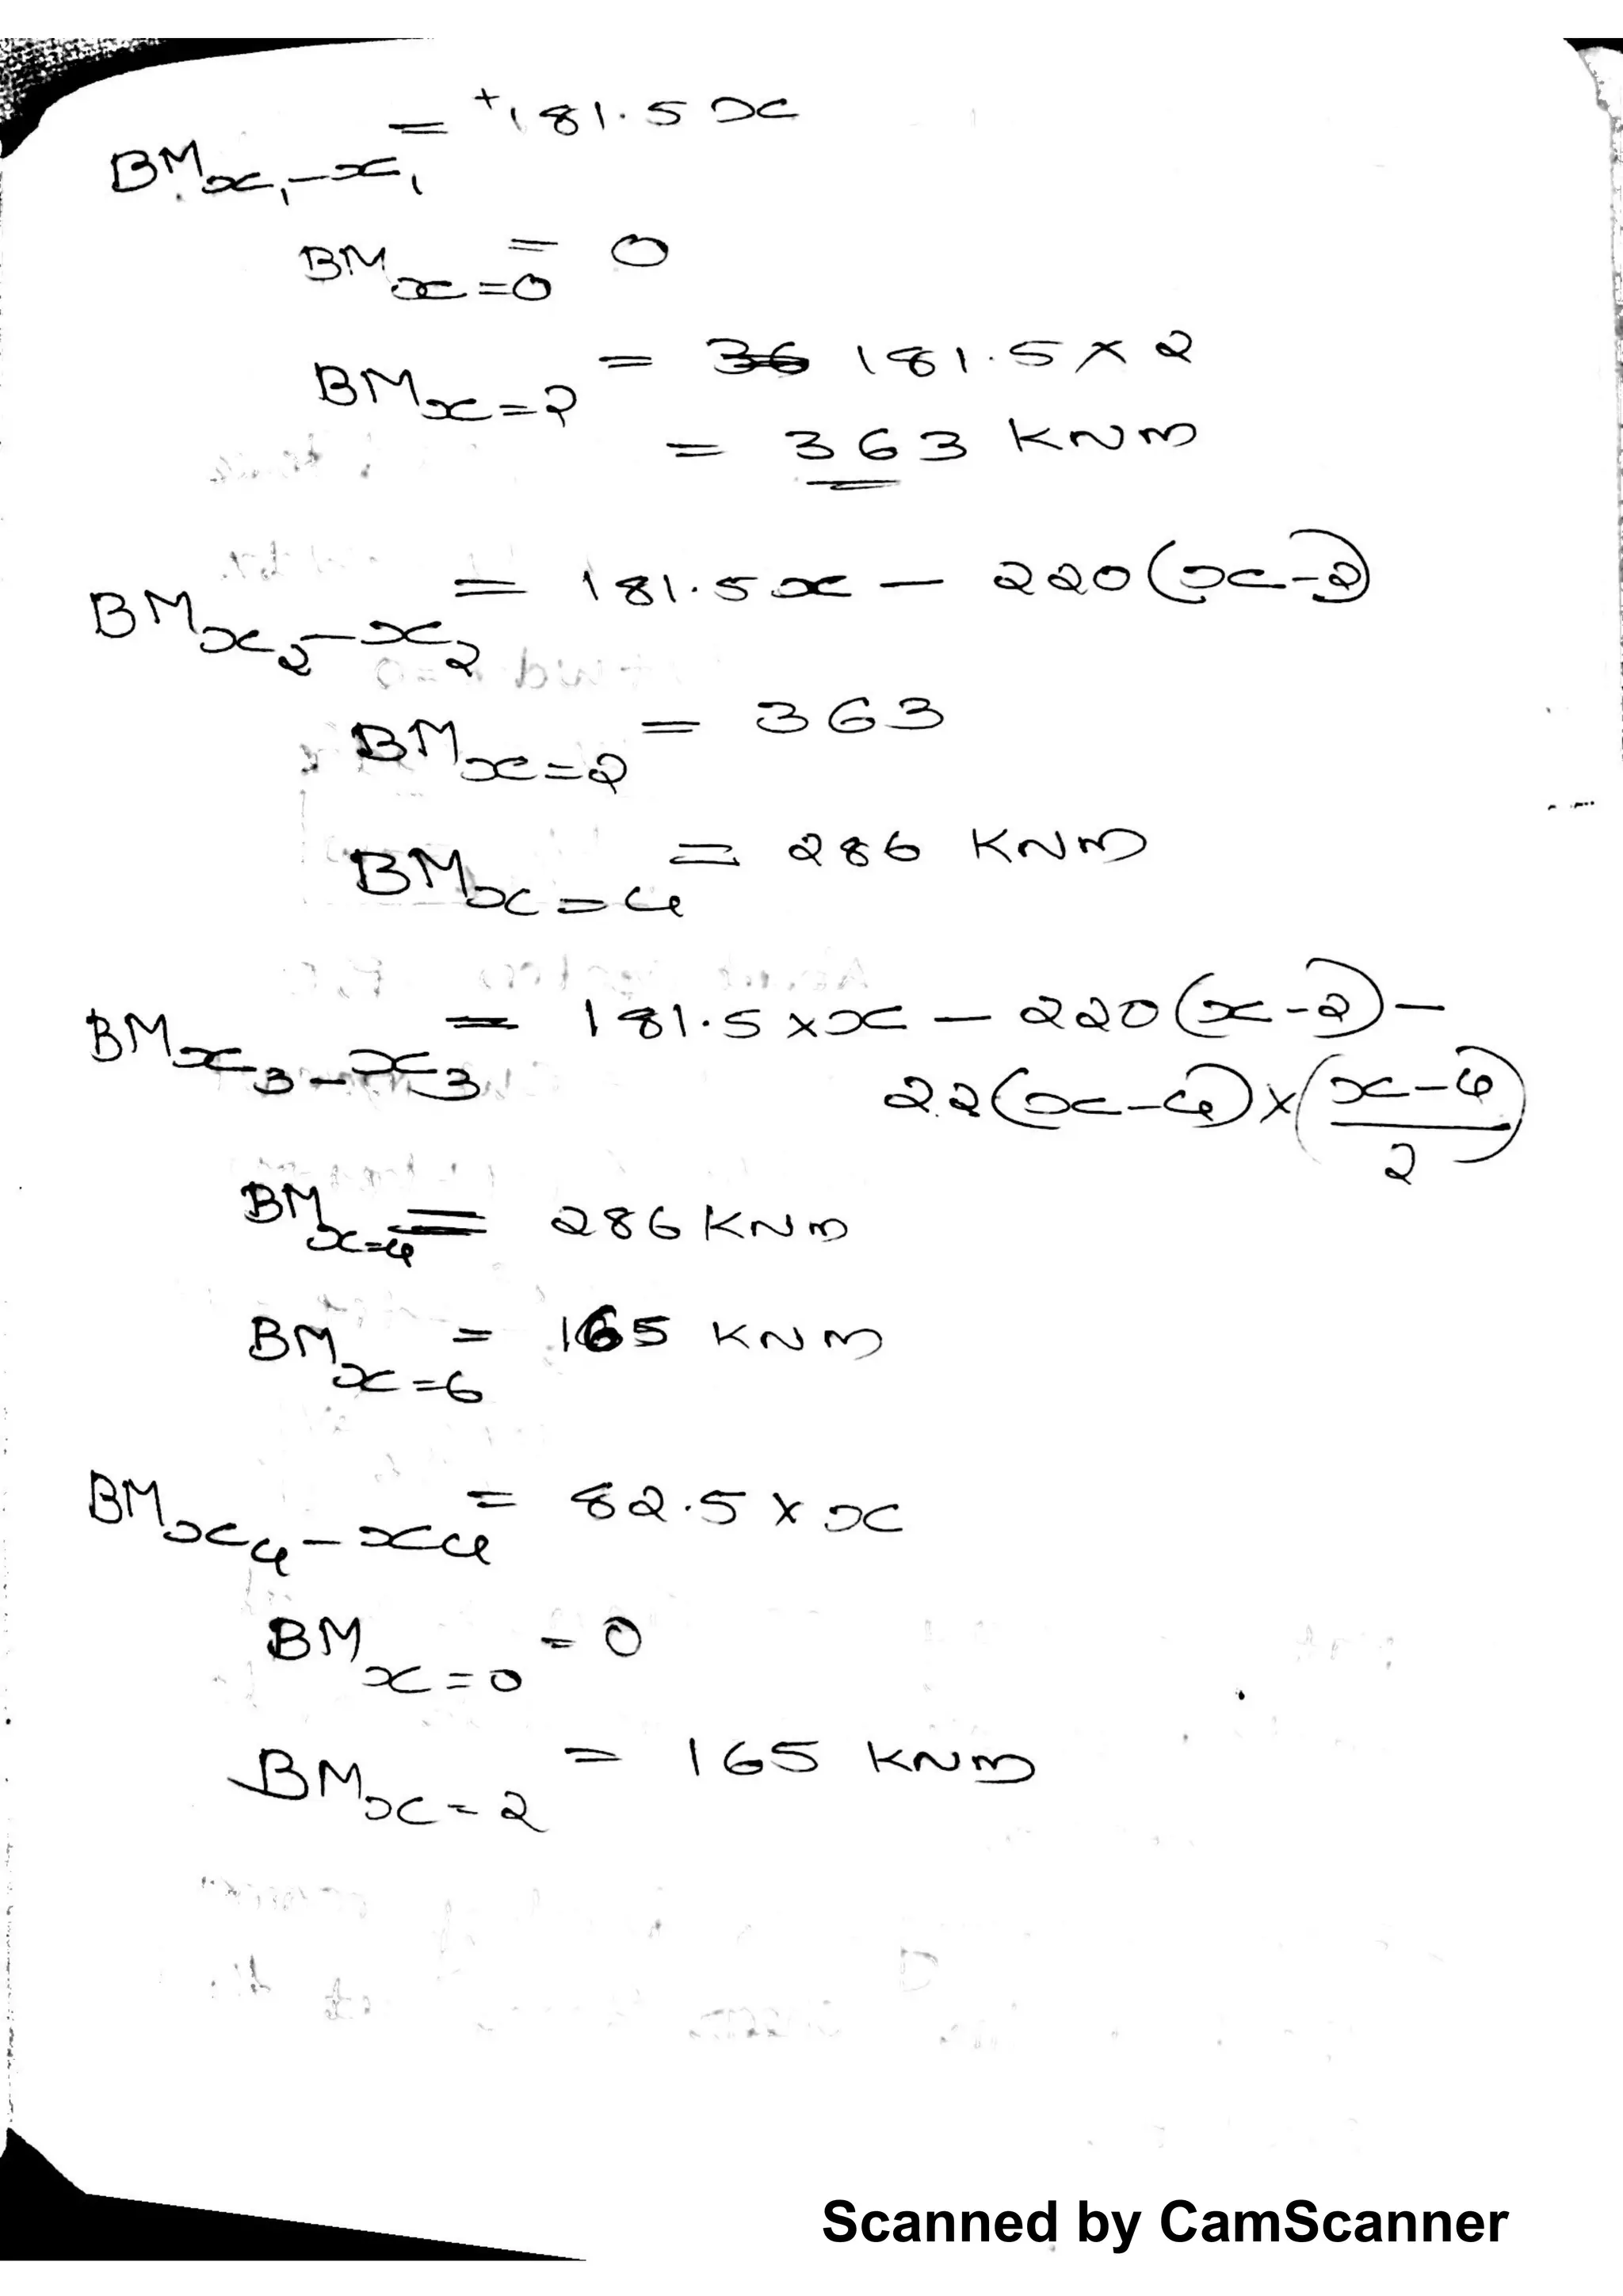 BMx₁-x₁ = +181.5 x
BMx=0 = 0
BMx=2 = 181.5 × 2
= 363 KNm
BMx₂-x₂ = 181.5x - 220(x-2)
BMx=2 = 363
BMx=4 = 286 KNm
BMx₃-x₃ = 181.5 × x - 220(x-2) -
22(x-4) × (x-4/2)
BMx=4 = 286 KNm
BMx=6 = 165 KNm
BMx₄-x₄ = 82.5 × x
BMx=0 = 0
BMx=2 = 165 KNm
Scanned by CamScanner